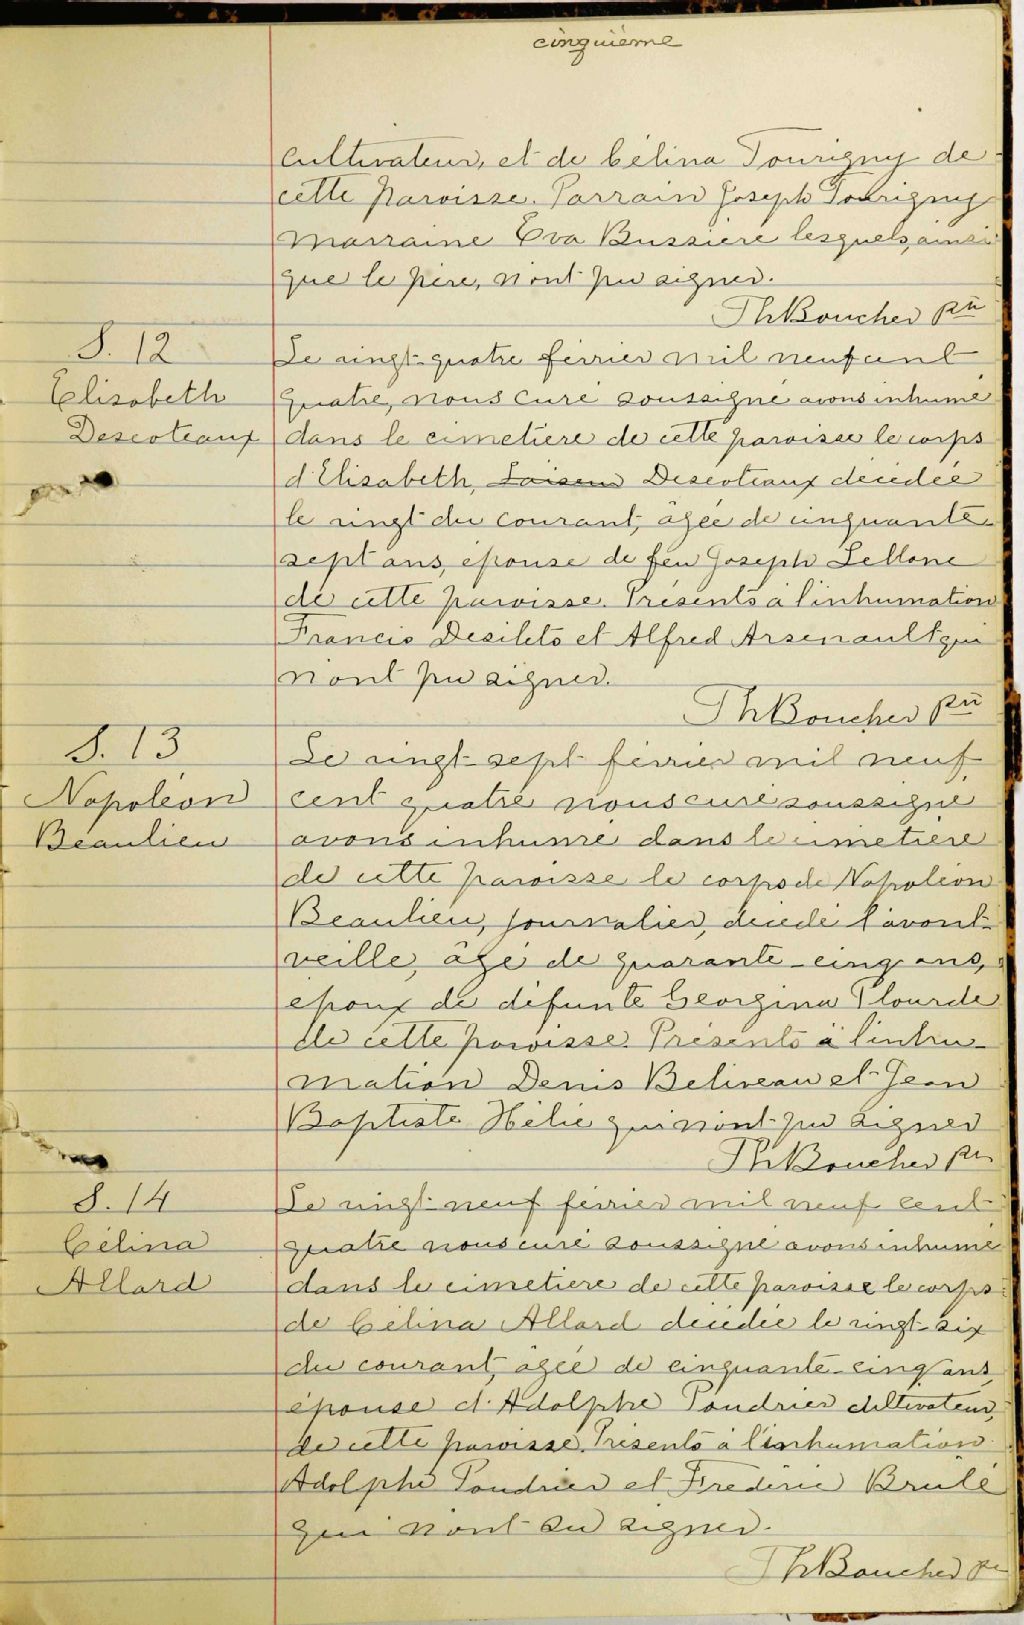 cinquième
cultivateur, et de Célina Tourigny de
cette paroisse. Parrain Joseph Tourigny
marraine Eva Bussiere lesquels, ainsi
que le père, n'ont pu signer.
ThBoucher ptre
S. 12
Elisabeth
Descoteaux
Le vingt-quatre février mil neuf cent
quatre, nous curé soussigné avons inhumé
dans le cimetière de cette paroisse le corps
d'Elisabeth, Descoteaux décédée
le vingt du courant, âgée de cinquante-
sept ans, épouse de feu Joseph Leblanc
de cette paroisse. Présents à l'inhumation
Francis Desilets et Alfred Arsenault qui
n'ont pu signer.
ThBoucher ptre
S. 13
Napoléon
Beaulieu
Le vingt-sept février mil neuf
cent quatre nous curé soussigné
avons inhumé dans le cimetière
de cette paroisse le corps de Napoléon
Beaulieu, journalier, décédé l'avant-
veille, âgé de quarante-cinq ans,
époux de défunte Georgina Plourde
de cette paroisse. Présents à l'inhu-
mation Denis Beliveau et Jean
Baptiste Hélie qui n'ont pu signer
ThBoucher ptre
S. 14
Célina
Allard
Le vingt-neuf février mil neuf cent
quatre nous curé soussigné avons inhumé
dans le cimetière de cette paroisse le corps
de Célina Allard décédée le vingt-six
du courant, âgée de cinquante-cinq ans,
épouse d'Adolphe Poudrier cultivateur,
de cette paroisse. Présents à l'inhumation
Adolphe Poudrier et Frédéric Brulé
qui n'ont su signer.
ThBoucher ptre